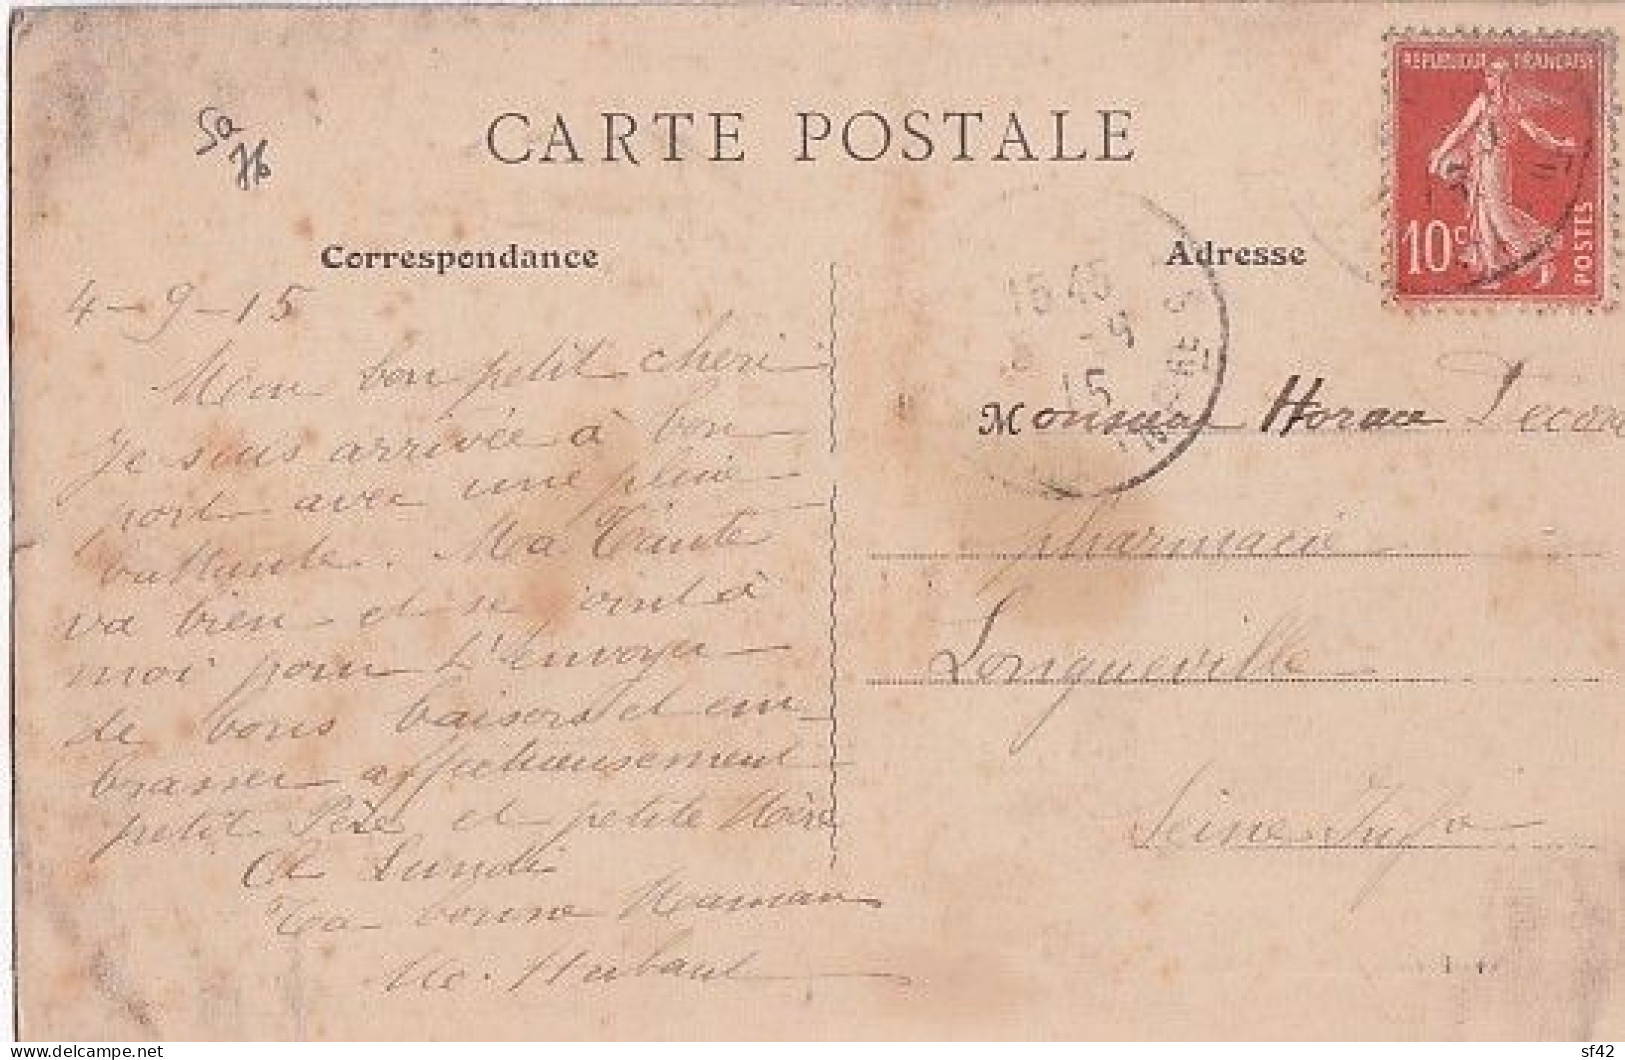 CARTE POSTALE
Correspondance
Adresse
REPUBLIQUE FRANÇAISE
10c
POSTES
15 45
-9
15
4-9-15
Mon bon petit cheri
Je suis arrivée à bon
port avec une pluie
battante. Ma Tante
va bien et se joint à
moi pour t'envoyer
de bons baisers et em
brasser affectueusement
petit Père et petite Mère
A Lundi
Ta bonne Maman
Me. Hubaut
Monsieur Horace
pharmacie
Longueville
Seine Infre
delcampe.net
sf42